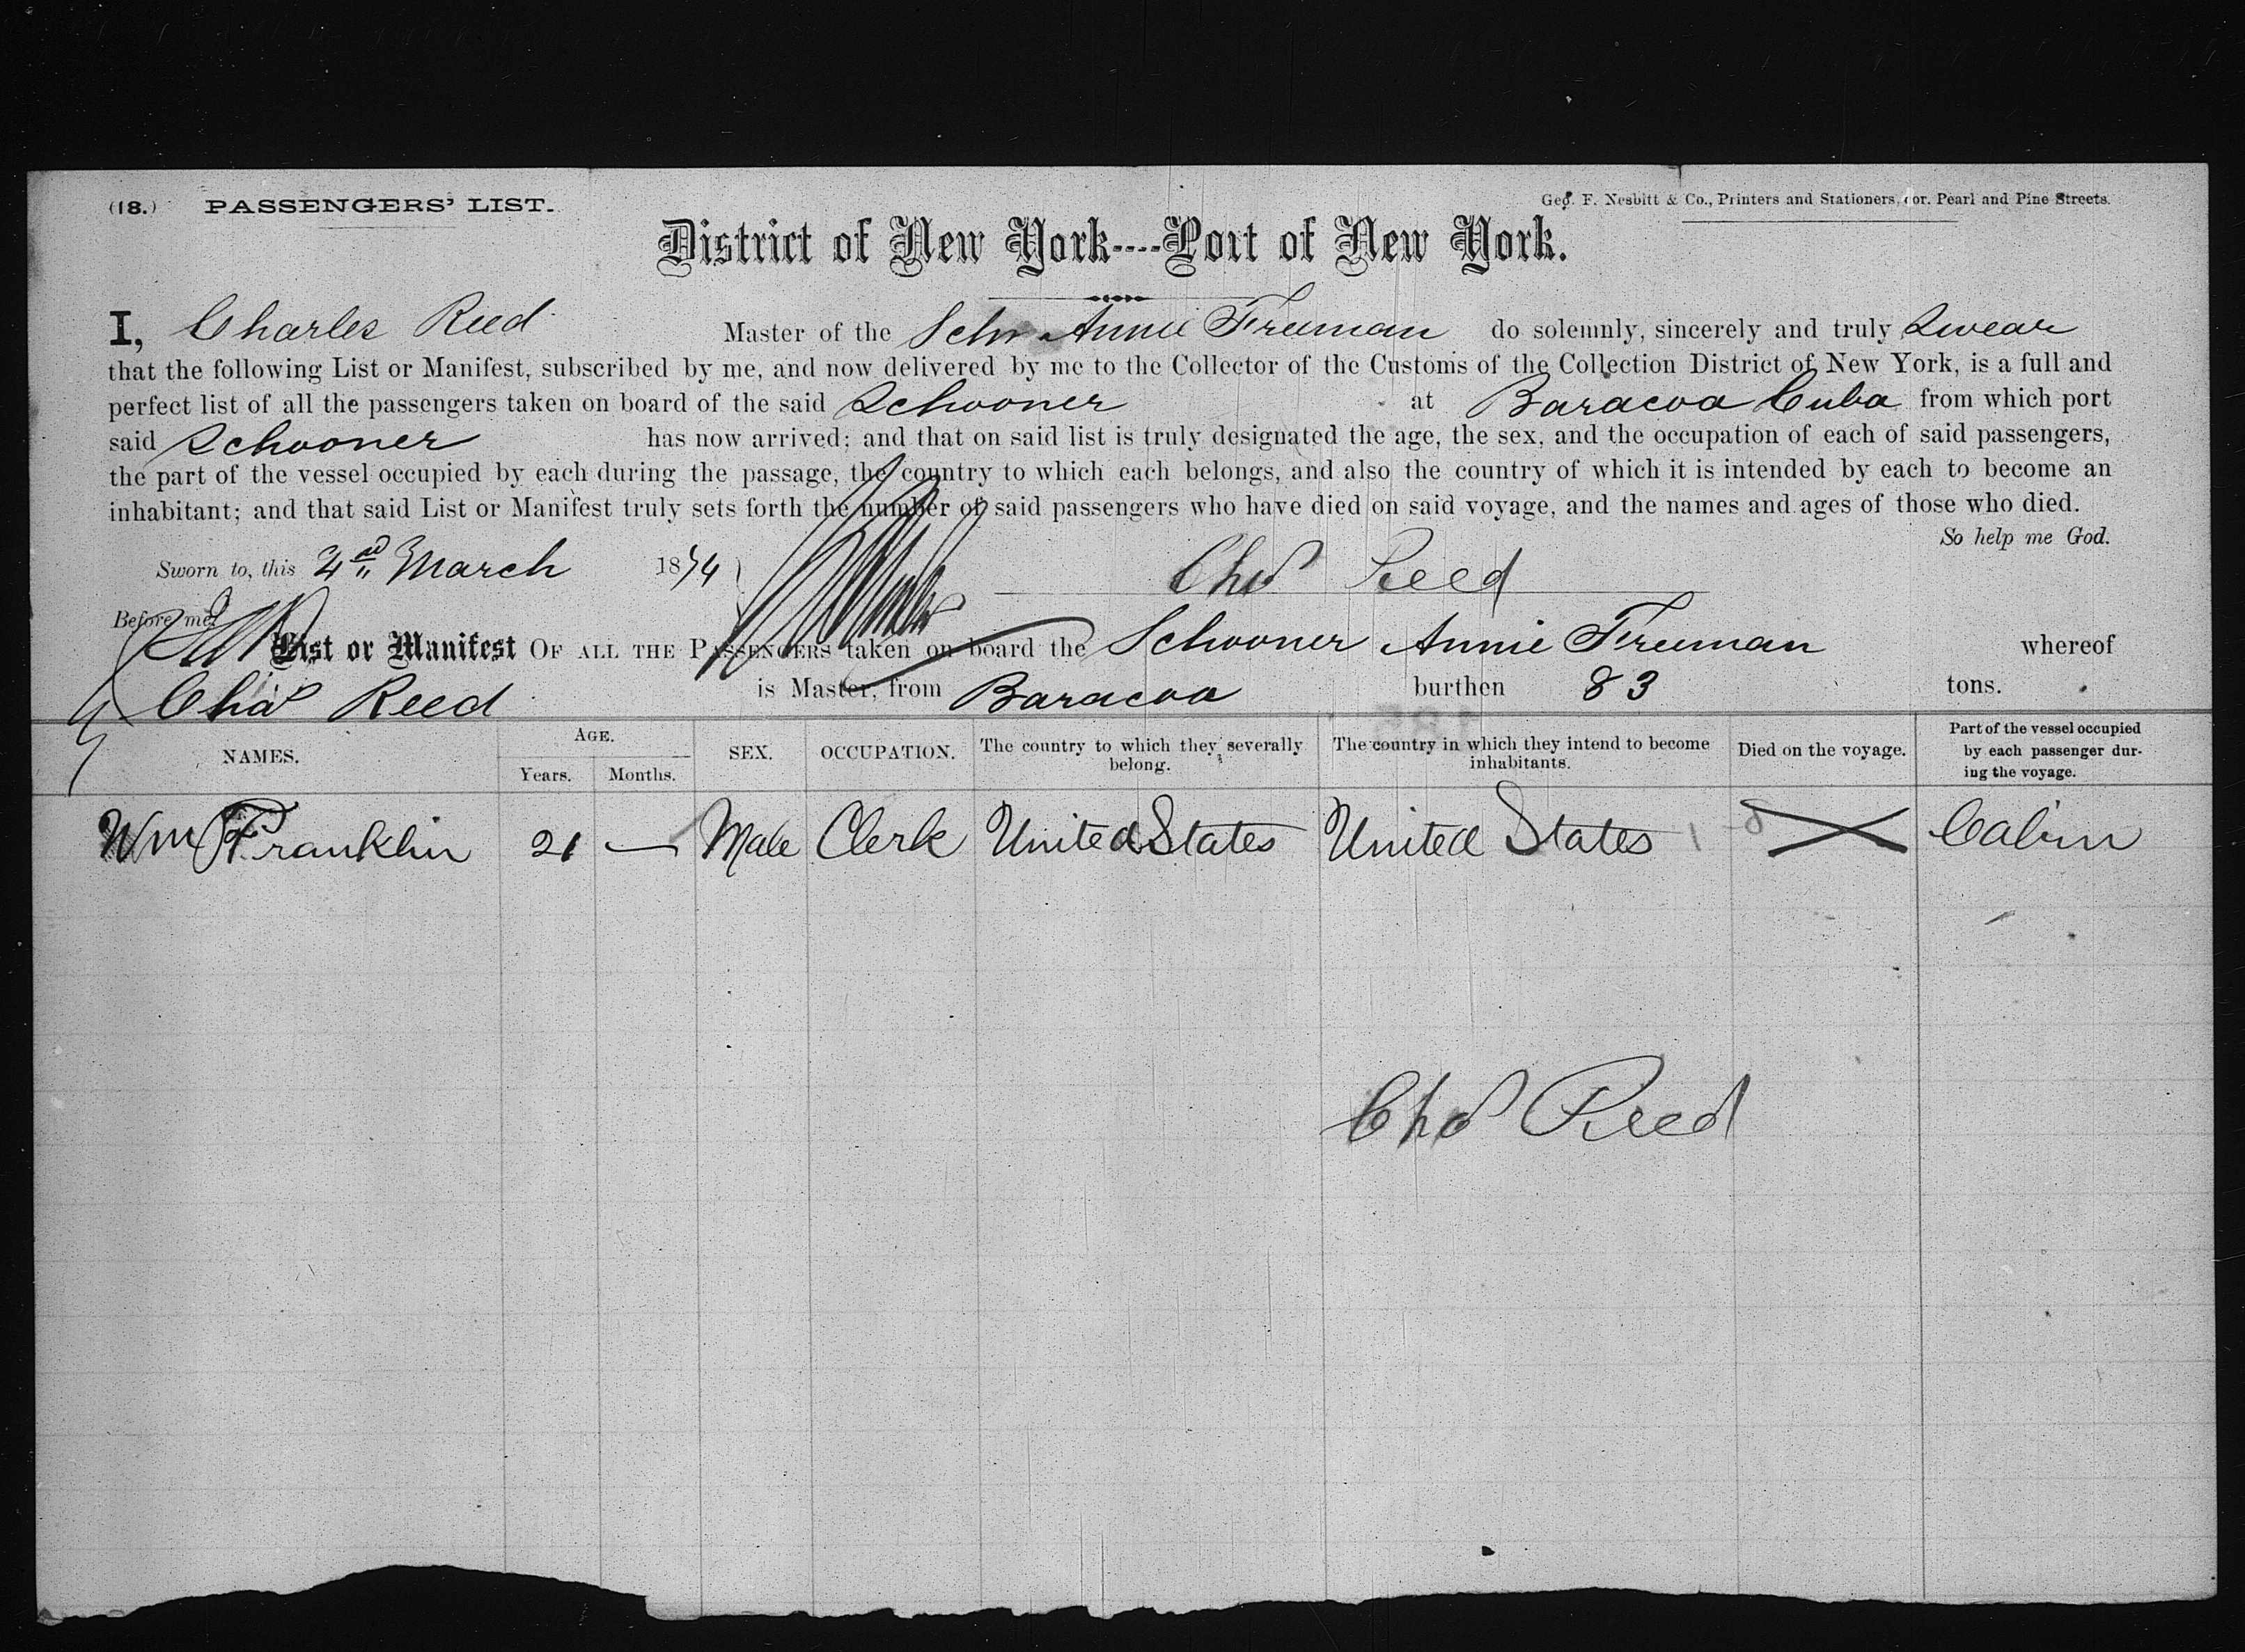 (18.) PASSENGERS' LIST.
Geo. F. Nesbitt & Co., Printers and Stationers, cor. Pearl and Pine Streets.
District of New York----Port of New York.
I, Charles Reed Master of the Schr Annie Freeman do solemnly, sincerely and truly Swear
that the following List or Manifest, subscribed by me, and now delivered by me to the Collector of the Customs of the Collection District of New York, is a full and
perfect list of all the passengers taken on board of the said Schooner at Baracoa Cuba from which port
said Schooner has now arrived; and that on said list is truly designated the age, the sex, and the occupation of each of said passengers,
the part of the vessel occupied by each during the passage, the country to which each belongs, and also the country of which it is intended by each to become an
inhabitant; and that said List or Manifest truly sets forth the number of said passengers who have died on said voyage, and the names and ages of those who died.
So help me God.
Sworn to, this March 1874
Chas Reed
Before me,
List or Manifest OF ALL THE PASSENGERS taken on board the Schooner Annie Freeman whereof
Chas Reed is Master, from Baracoa burthen 83 tons.
NAMES. AGE. Years. Months. SEX. OCCUPATION. The country to which they severally belong. The country in which they intend to become inhabitants. Died on the voyage. Part of the vessel occupied by each passenger during the voyage.
Wm Franklin 21 — Male Clerk United States United States Cabin
Chas Reed